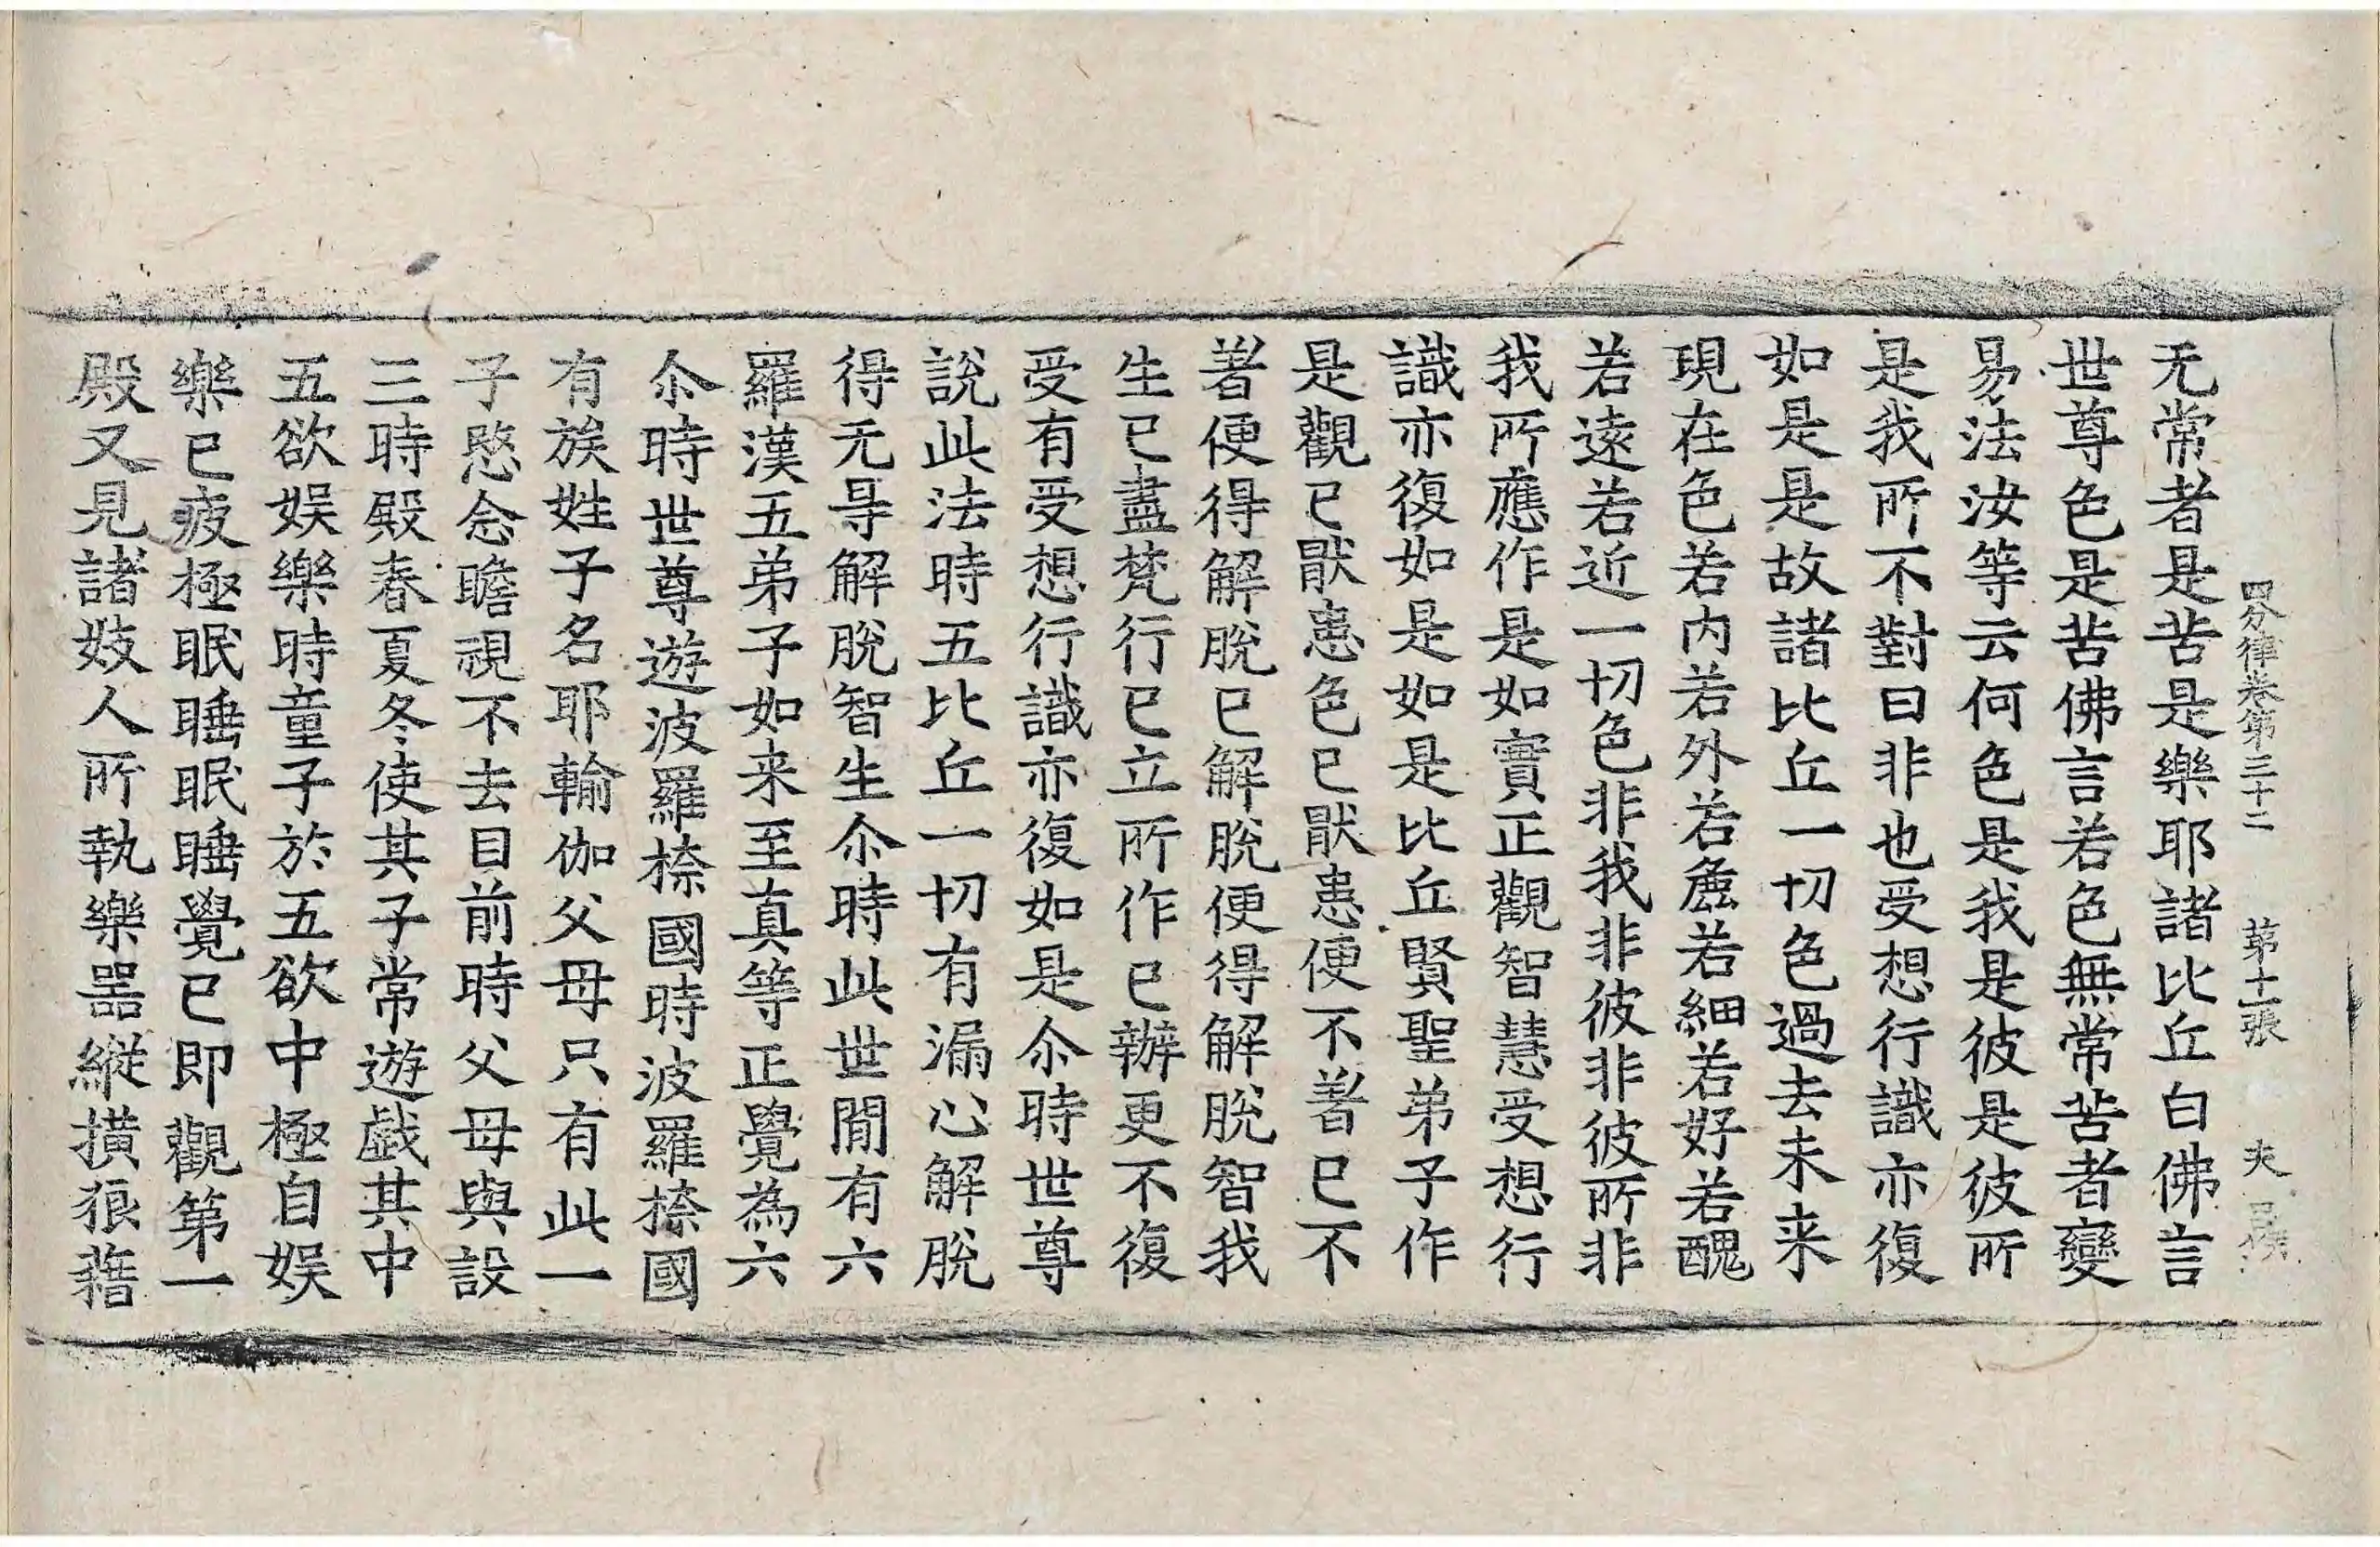 四分律卷第三十二 第十一張 夾
无常者是苦是樂耶諸比丘白佛言
世尊色是苦佛言若色無常苦者變
易法汝等云何色是我是彼是彼所
是我所不對曰非也受想行識亦復
如是是故諸比丘一切色過去未来
現在色若内若外若麁若細若好若醜
若遠若近一切色非我非彼非彼所非
我所應作是如實正觀智慧受想行
識亦復如是如是比丘賢聖弟子作
是觀已猒患色已猒患便不著已不
著便得解脫已解脫便得解脫智我
生已盡梵行已立所作已辦更不復
受有受想行識亦復如是尒時世尊
說此法時五比丘一切有漏心解脫
得无㝵解脫智生尒時此世間有六
羅漢五弟子如来至真等正覺為六
尒時世尊遊波羅㮈國時波羅㮈國
有族姓子名耶輸伽父母只有此一
子愍念瞻視不去目前時父母與設
三時殿春夏冬使其子常遊戲其中
五欲娛樂時童子於五欲中極自娛
樂已疲極眠睡眠睡覺已即觀第一
殿又見諸妓人所執樂器縱撗狼藉